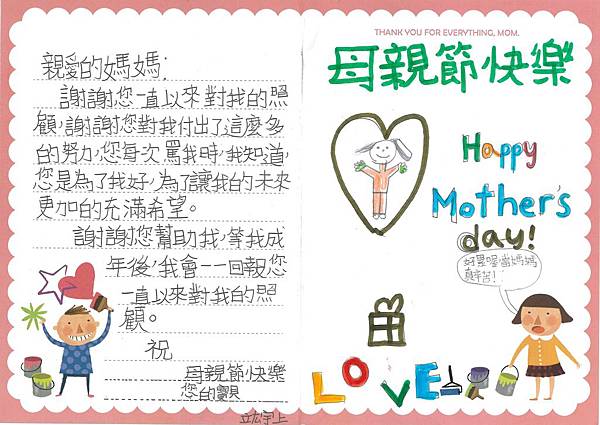 親愛的媽媽：
謝謝您一直以來對我的照
顧，謝謝您對我付出了這麼多
的努力，您每次罵我時，我知道，
您是為了我好，為了讓我的未來
更加的充滿希望。
謝謝您幫助我，等我成
年後，我會一一回報您
一直以來對我的照
顧。
祝
母親節快樂
您的寶貝
立宏宇上
THANK YOU FOR EVERYTHING, MOM.
母親節快樂
Happy
Mother's
day!
好累喔當媽媽
真辛苦!
LOVE